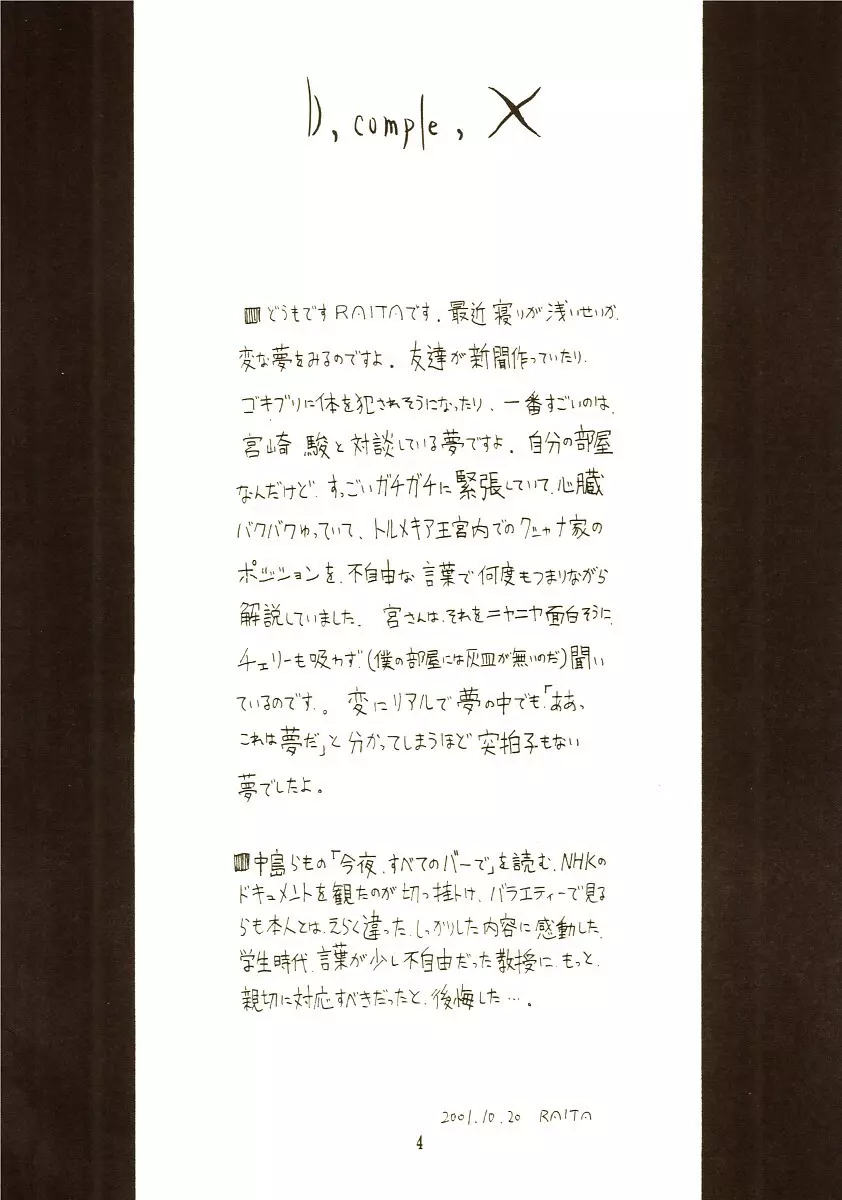 D, comple, X
どうもですRAITAです. 最近寝りが浅いせいか.
変な夢をみるのですよ. 友達が新聞作っていたり.
ゴキブリに体を犯されそうになったり、一番すごいのは.
宮崎 駿と対談している夢ですよ. 自分の部屋
なんだけど. すっごいガチガチに緊張していて、心臓
バクバクゆっていて、トルメキア王宮内でのクシャナ家の
ポジションを、不自由な言葉で何度もつまりながら
解説していました. 宮さんは、それをニヤニヤ面白そうに、
チェリーも吸わず.(僕の部屋には灰皿が無いのだ)聞い
ているのです.。変にリアルで夢の中でも「ああっ
これは夢だ」と分かってしまうほど突拍子もない
夢でしたよ。
中島らもの「今夜、すべてのバーで」を読む、NHKの
ドキュメントを観たのが切っ掛け、バラエティーで見る
らも本人とは、えらく違った、しっかりした内容に感動した、
学生時代、言葉が少し不自由だった教授に、もっと、
親切に対応すべきだったと、後悔した…。
2001.10.20 RAITA
4